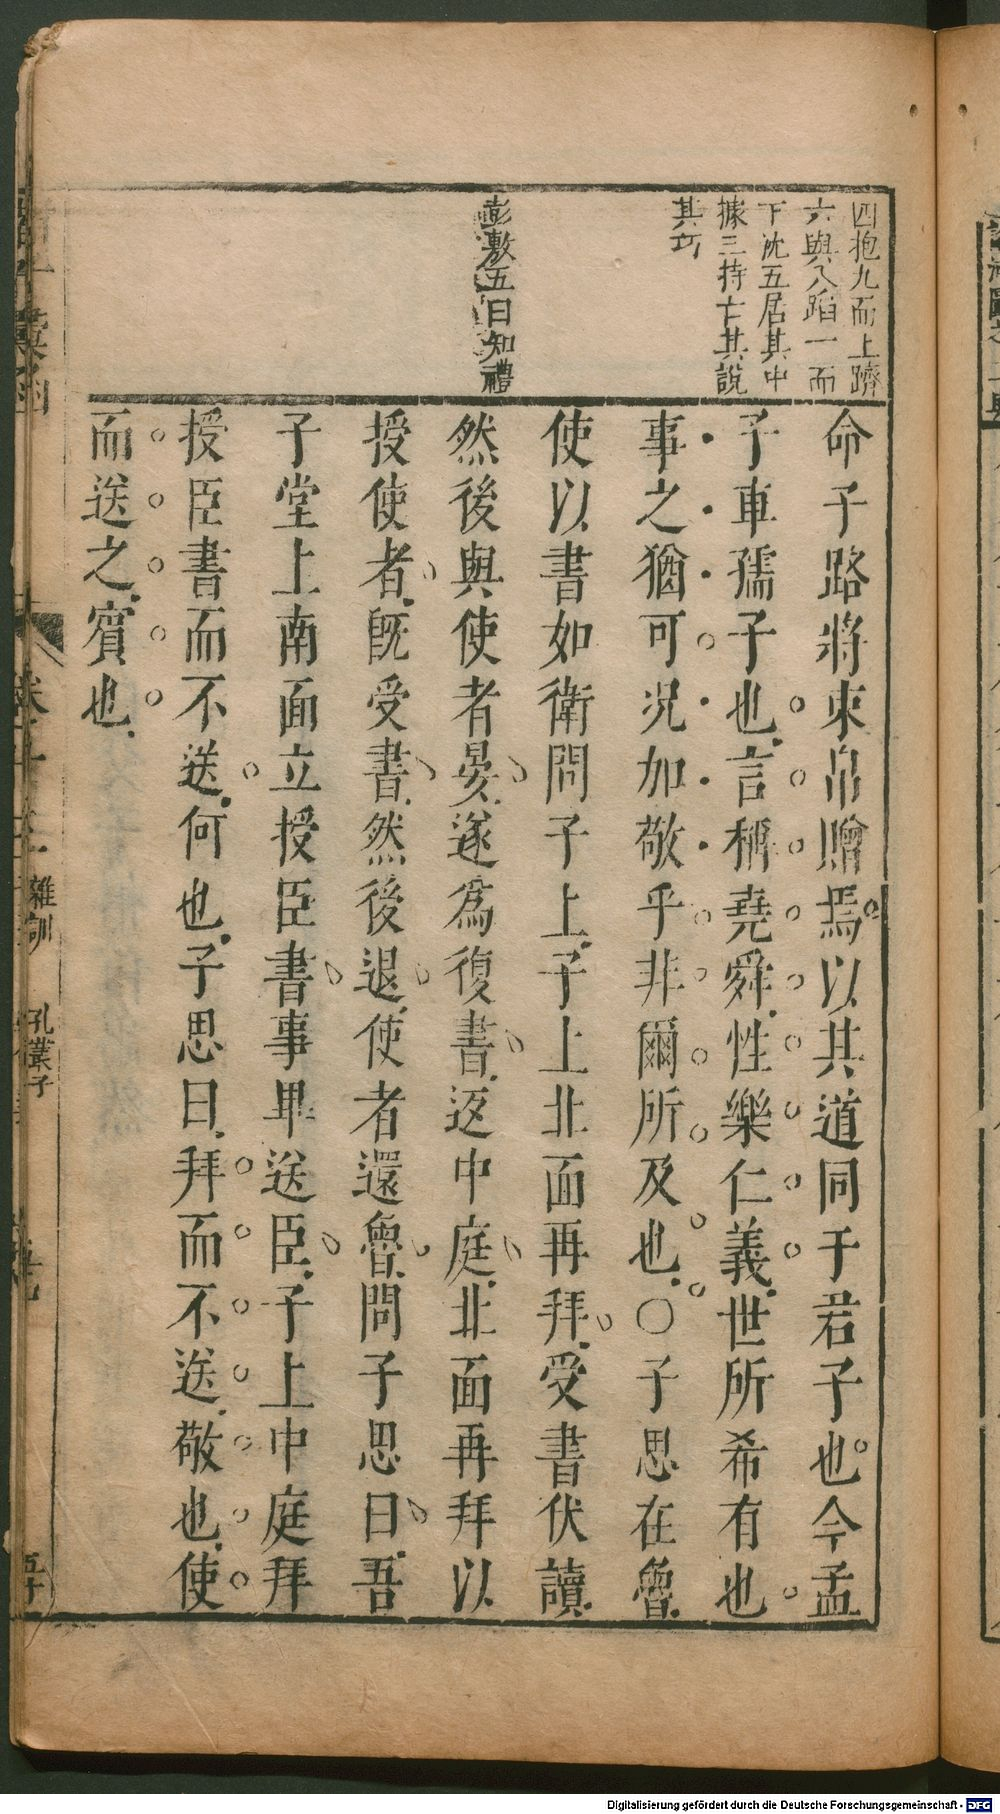 四抱九而上躋
六與八蹈一而
下沈五居其中
據三持七其說
其巧
彭敷五曰知禮
命子路將束帛贈焉以其道同于君子也今孟
子車孺子也言稱堯舜性樂仁義世所希有也
事之猶可况加敬乎非爾所及也○子思在魯
使以書如衛問子上子上北面再拜受書伏讀
然後與使者晏遂爲復書返中庭北面再拜以
授使者既受書然後退使者還魯問子思曰吾
子堂上南面立授臣書事畢送臣子上中庭拜
授臣書而不送何也子思曰拜而不送敬也使
而送之賓也
雜訓
孔叢子
五十
Digitalisierung gefördert durch die Deutsche Forschungsgemeinschaft - DFG